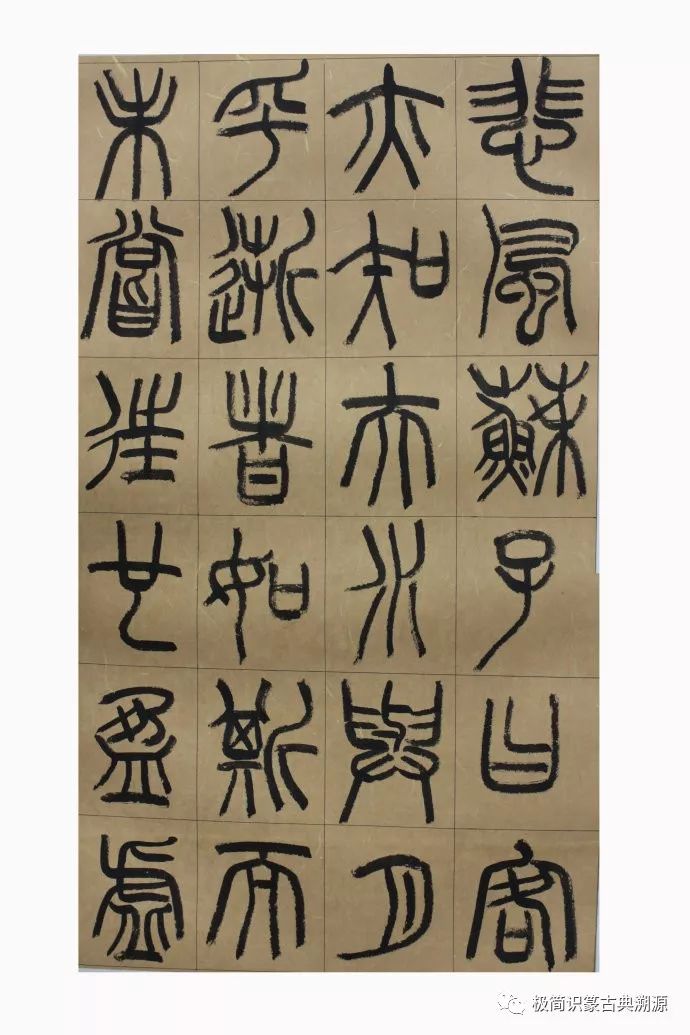 悲風蘇子曰客
亦知夫水與月
乎逝者如斯而
未嘗往也盈虛
极简识篆古典溯源